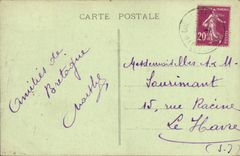 CARTE POSTALE
20
Amitiés de
Bretagne
Marthe
Mesdemoiselles A & M
Saurimant
15, rue Racine
Le Havre
(S.I)